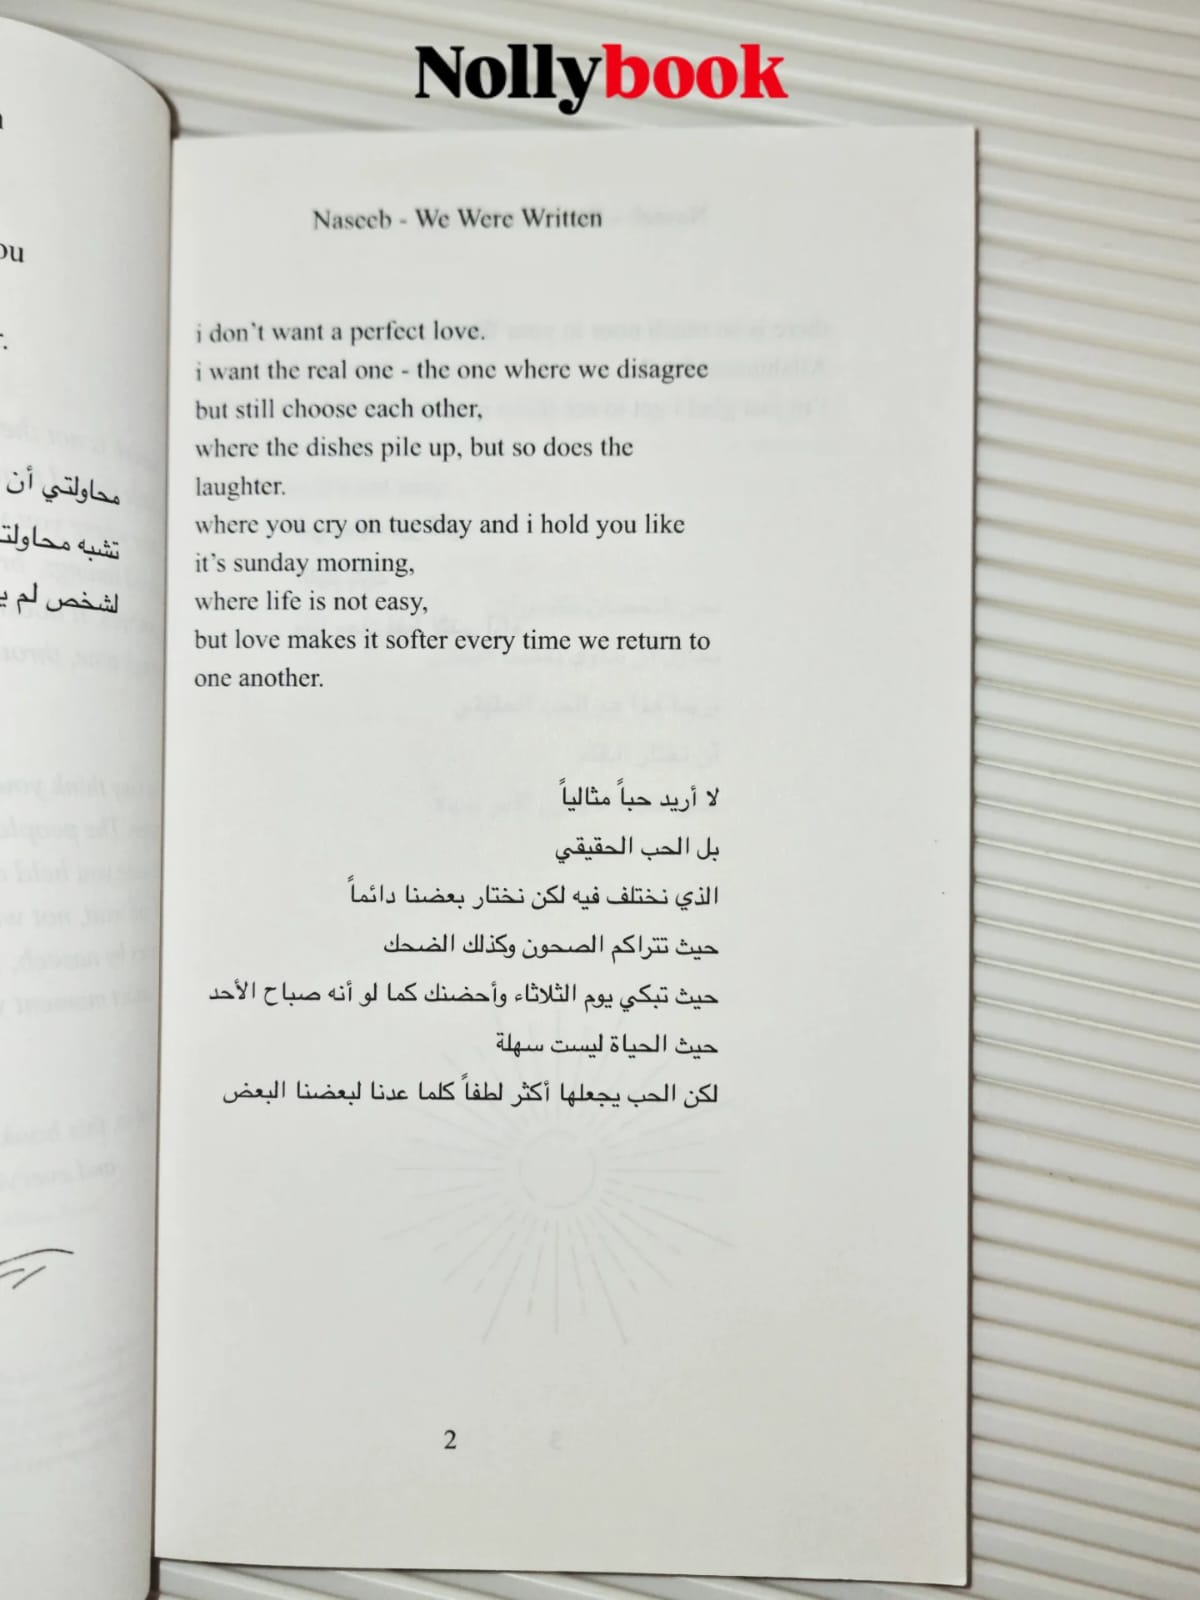 Nollybook
Naseeb - We Were Written
i don't want a perfect love.
i want the real one - the one where we disagree
but still choose each other,
where the dishes pile up, but so does the
laughter.
where you cry on tuesday and i hold you like
it's sunday morning,
where life is not easy,
but love makes it softer every time we return to
one another.
لا أريد حباً مثالياً
بل الحب الحقيقي
الذي نختلف فيه لكن نختار بعضنا دائماً
حيث تتراكم الصحون وكذلك الضحك
حيث تبكي يوم الثلاثاء وأحضنك كما لو أنه صباح الأحد
حيث الحياة ليست سهلة
لكن الحب يجعلها أكثر لطفاً كلما عدنا لبعضنا البعض
2
محاولتي أن
تشبه
لشخص لم